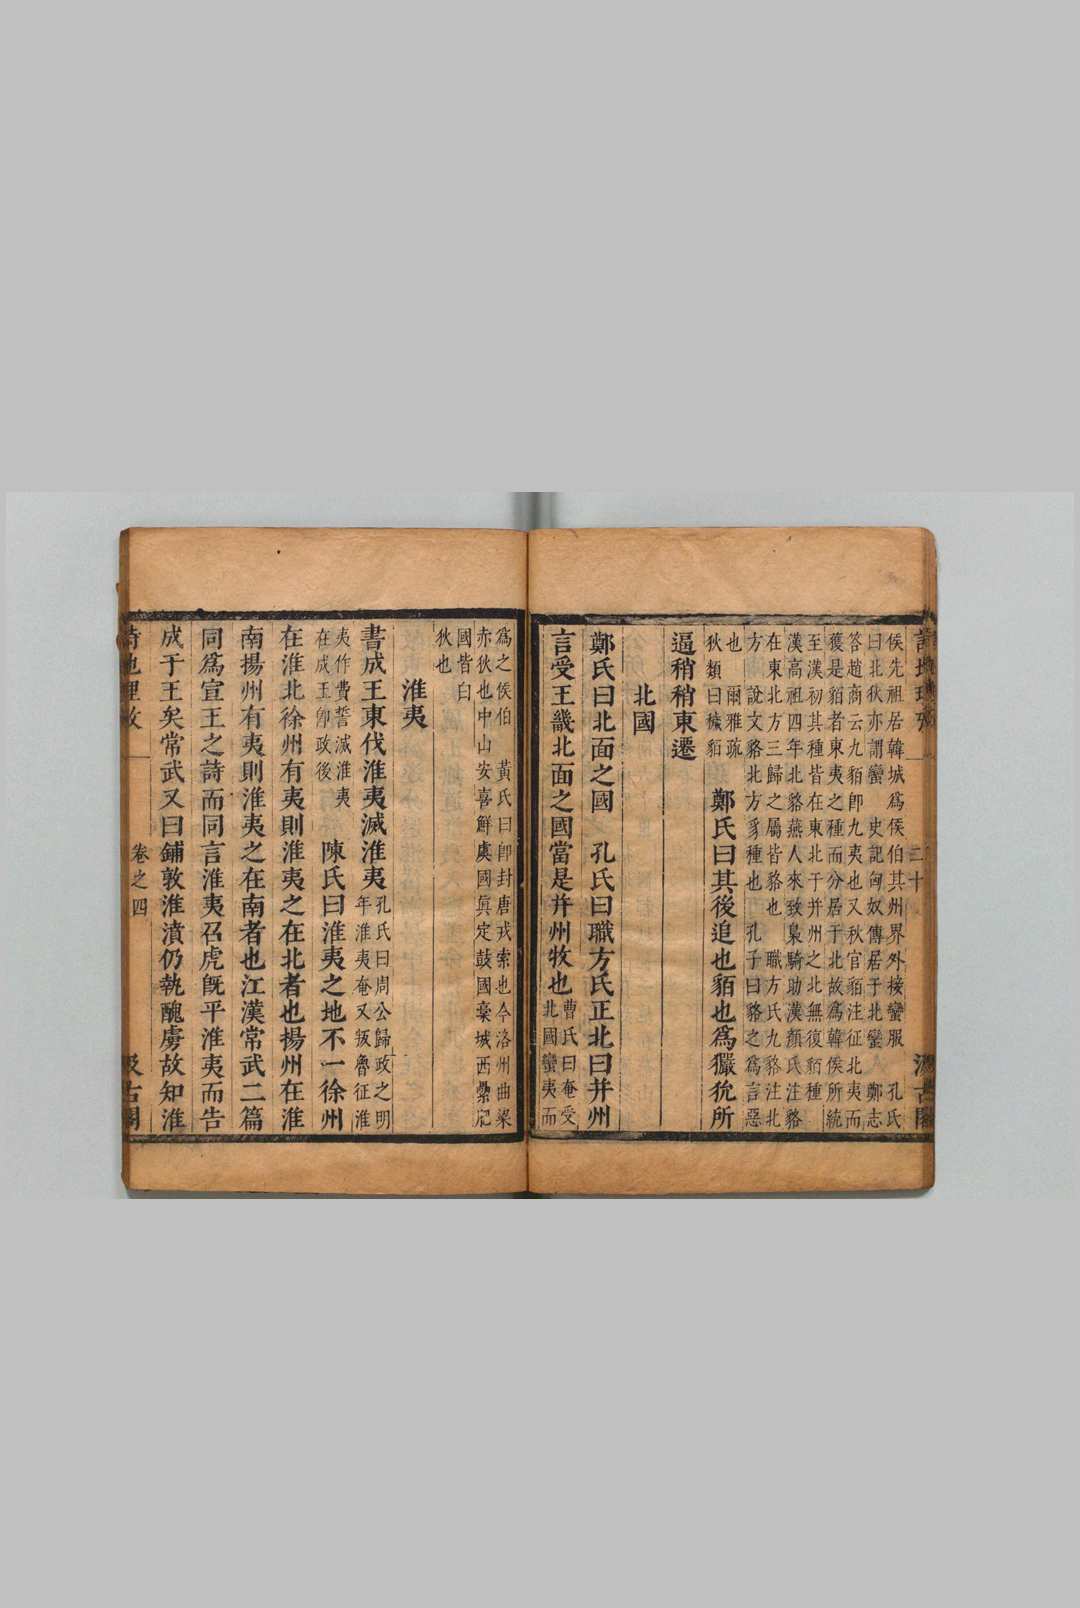 侯先祖居韓城爲侯伯其州界外接蠻服　孔氏
曰北狄亦謂蠻　史記匈奴傳居于北蠻　鄭志
答趙商云九貊卽九夷也又秋官貊注征北夷而
獲是貊者東夷之種而分居于北故爲韓侯所統
至漢初其種皆在東北于并州之北無復貊種
漢高祖四年北貉燕人來致梟騎助漢顏氏注貉
在東北方三歸之屬皆貉也　職方氏九貉注北
方　說文貉北方豸種也　孔子曰貉之爲言惡
也　爾雅疏
狄類曰穢貊
鄭氏曰其後追也貊也爲玁狁所
逼稍稍東遷
北國
鄭氏曰北面之國　孔氏曰職方氏正北曰并州
言受王畿北面之國當是并州牧也
曹氏曰奄受
北國蠻夷而
爲之侯伯　黃氏曰卽封唐戎索也今洛州曲梁
赤狄也中山安喜鮮虞國眞定鼓國稾城西纍㲼
國皆白
狄也
淮夷
書成王東伐淮夷滅淮夷
孔氏曰周公歸政之明
年淮夷奄又叛魯征淮
夷作費誓滅淮夷
在成王卽政後
陳氏曰淮夷之地不一徐州
在淮北徐州有夷則淮夷之在北者也揚州在淮
南揚州有夷則淮夷之在南者也江漢常武二篇
同爲宣王之詩而同言淮夷召虎旣平淮夷而告
成于王矣常武又曰鋪敦淮濆仍執醜虜故知淮
詩地理攷
卷之四
汲古閣